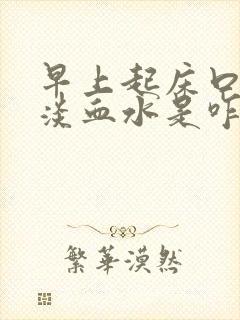 早上起床口
淡血水是咋
繁华漠然